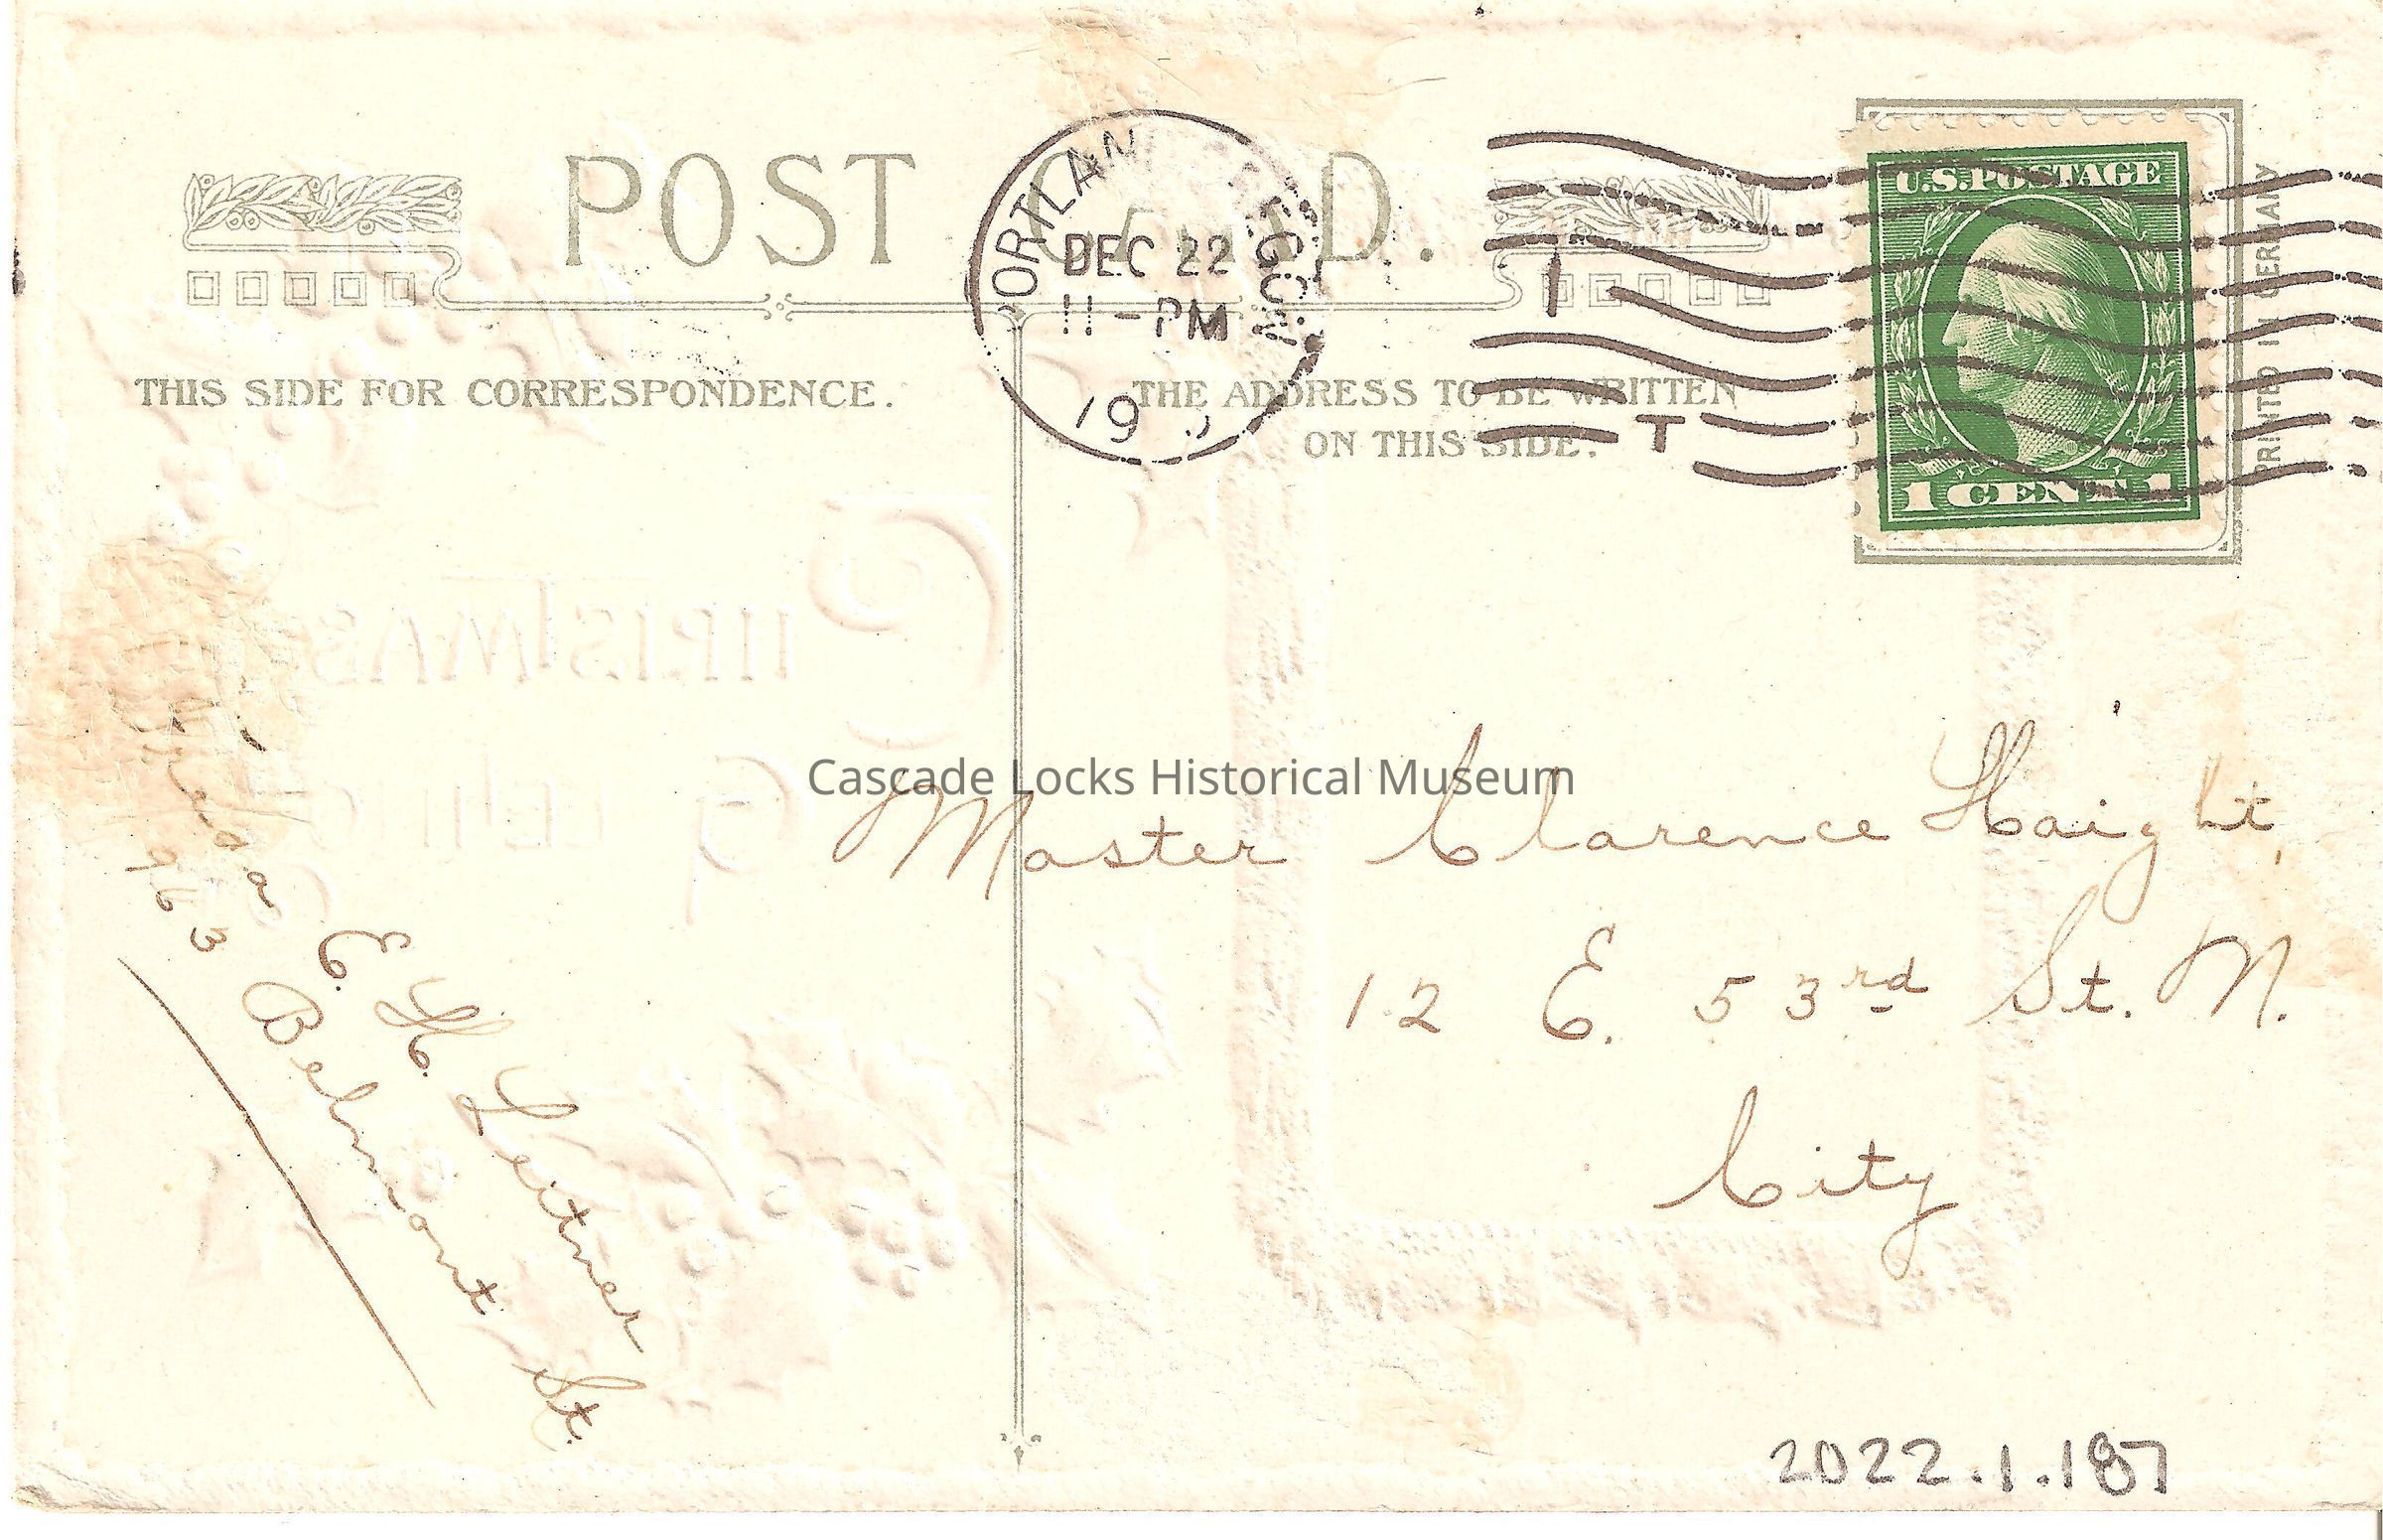 POST CARD.
PORTLAN OREGON.
DEC 22
11-PM
19
U.S.POSTAGE
1 CENT 1
PRINTED IN GERMANY
THIS SIDE FOR CORRESPONDENCE.
THE ADDRESS TO BE WRITTEN
ON THIS SIDE.
CHRISTMAS
Cascade Locks Historical Museum
Master Clarence Haight,
12 E. 53rd St. N.
City
E. H. Leitner
963 Belmont St.
2022.1.187